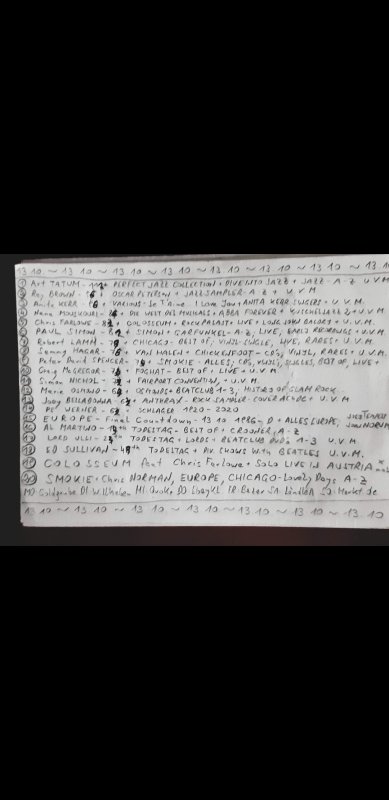 13 10. ~ 13 10 ~ 13 10 ~ 13 10 ~ 13 10 ~ 13 10 ~ 13 10 ~ 13 10
① Art TATUM - + PERFECT JAZZ COLLECTION + DIVE INTO JAZZ + JAZZ - A-Z U.V.M
② Ray BROWN - + OSCAR PETERSON + JAZZ SAMPLER A-Z + U.V.M
③ Anita KERR - + VARIOUS - Je T'aime I Love You + ANITA KERR SINGERS + U.V.M.
④ Nana MOUSKOURI - + DIE WELT DES MUSICALS + ABBA FOREVER + KUSCHELJAZZ 2, + U.V.M
⑤ Chris FARLOWE - + COLOSSEUM + ROCKPALAST + LIVE + LONG JOHN BALDRY + U.V.M.
⑥ PAUL SIMON - + SIMON + GARFUNKEL - A-Z, LIVE, EARLY RECORDINGS + U.V.M
⑦ Robert LAMM - + CHICAGO - BEST OF, VINYL-SINGLE, LIVE, RARES + U.V.M.
⑧ Sammy HAGAR - + VAN HALEN + CHICKENFOOT - CD's, VINYL, RARES + U.V.M
⑨ Peter David SPENCER - + SMOKIE - ALLES; CD's, VINYL, SINGLES, BEST OF, LIVE +
⑩ Greg McGREGOR - + FOGHAT - BEST OF + LIVE + U.V.M
⑪ Simon NICHOL - + FAIRPORT CONVENTION, + U.V.M.
⑫ Marie OSMOND - + OSMONDS + BEATCLUB 1-3, HISTORY OF GLAM ROCK..
⑬ Joey BELLADONNA + ANTHRAX - ROCK SAMPLER - COVER AC+DC + U.V.M
⑭ PE WERNER - + SCHLAGER 1920 - 2020
⑮ EUROPE - Final Countdown - 13 10 1986 - D + ALLES EUROPE,
⑯ AL MARTINO - TODESTAG - BEST OF + CROONER, A-Z
⑰ LORD ULLI - TODESTAG + LORDS + BEATCLUB DVD's 1-3 U.V.M.
⑱ ED SULLIVAN - TODESTAG + DIV SHOWS With BEATLES U.V.M.
⑲ COLOSSEUM feat Chris Farlowe + Solo LIVE IN AUSTRIA
⑳ SMOKIE - Chris NORMAN, EUROPE, CHICAGO - Lovely Days A-Z
MO Goldgrube DI Willhaben MI Quoka DO Ebay KL FR Bazar SA Ländle SO Markt de
13 10 ~ 13 10 ~ 13 10 ~ 13 10 ~ 13 10 ~ 13 10 ~ 13 10 ~ 13 10